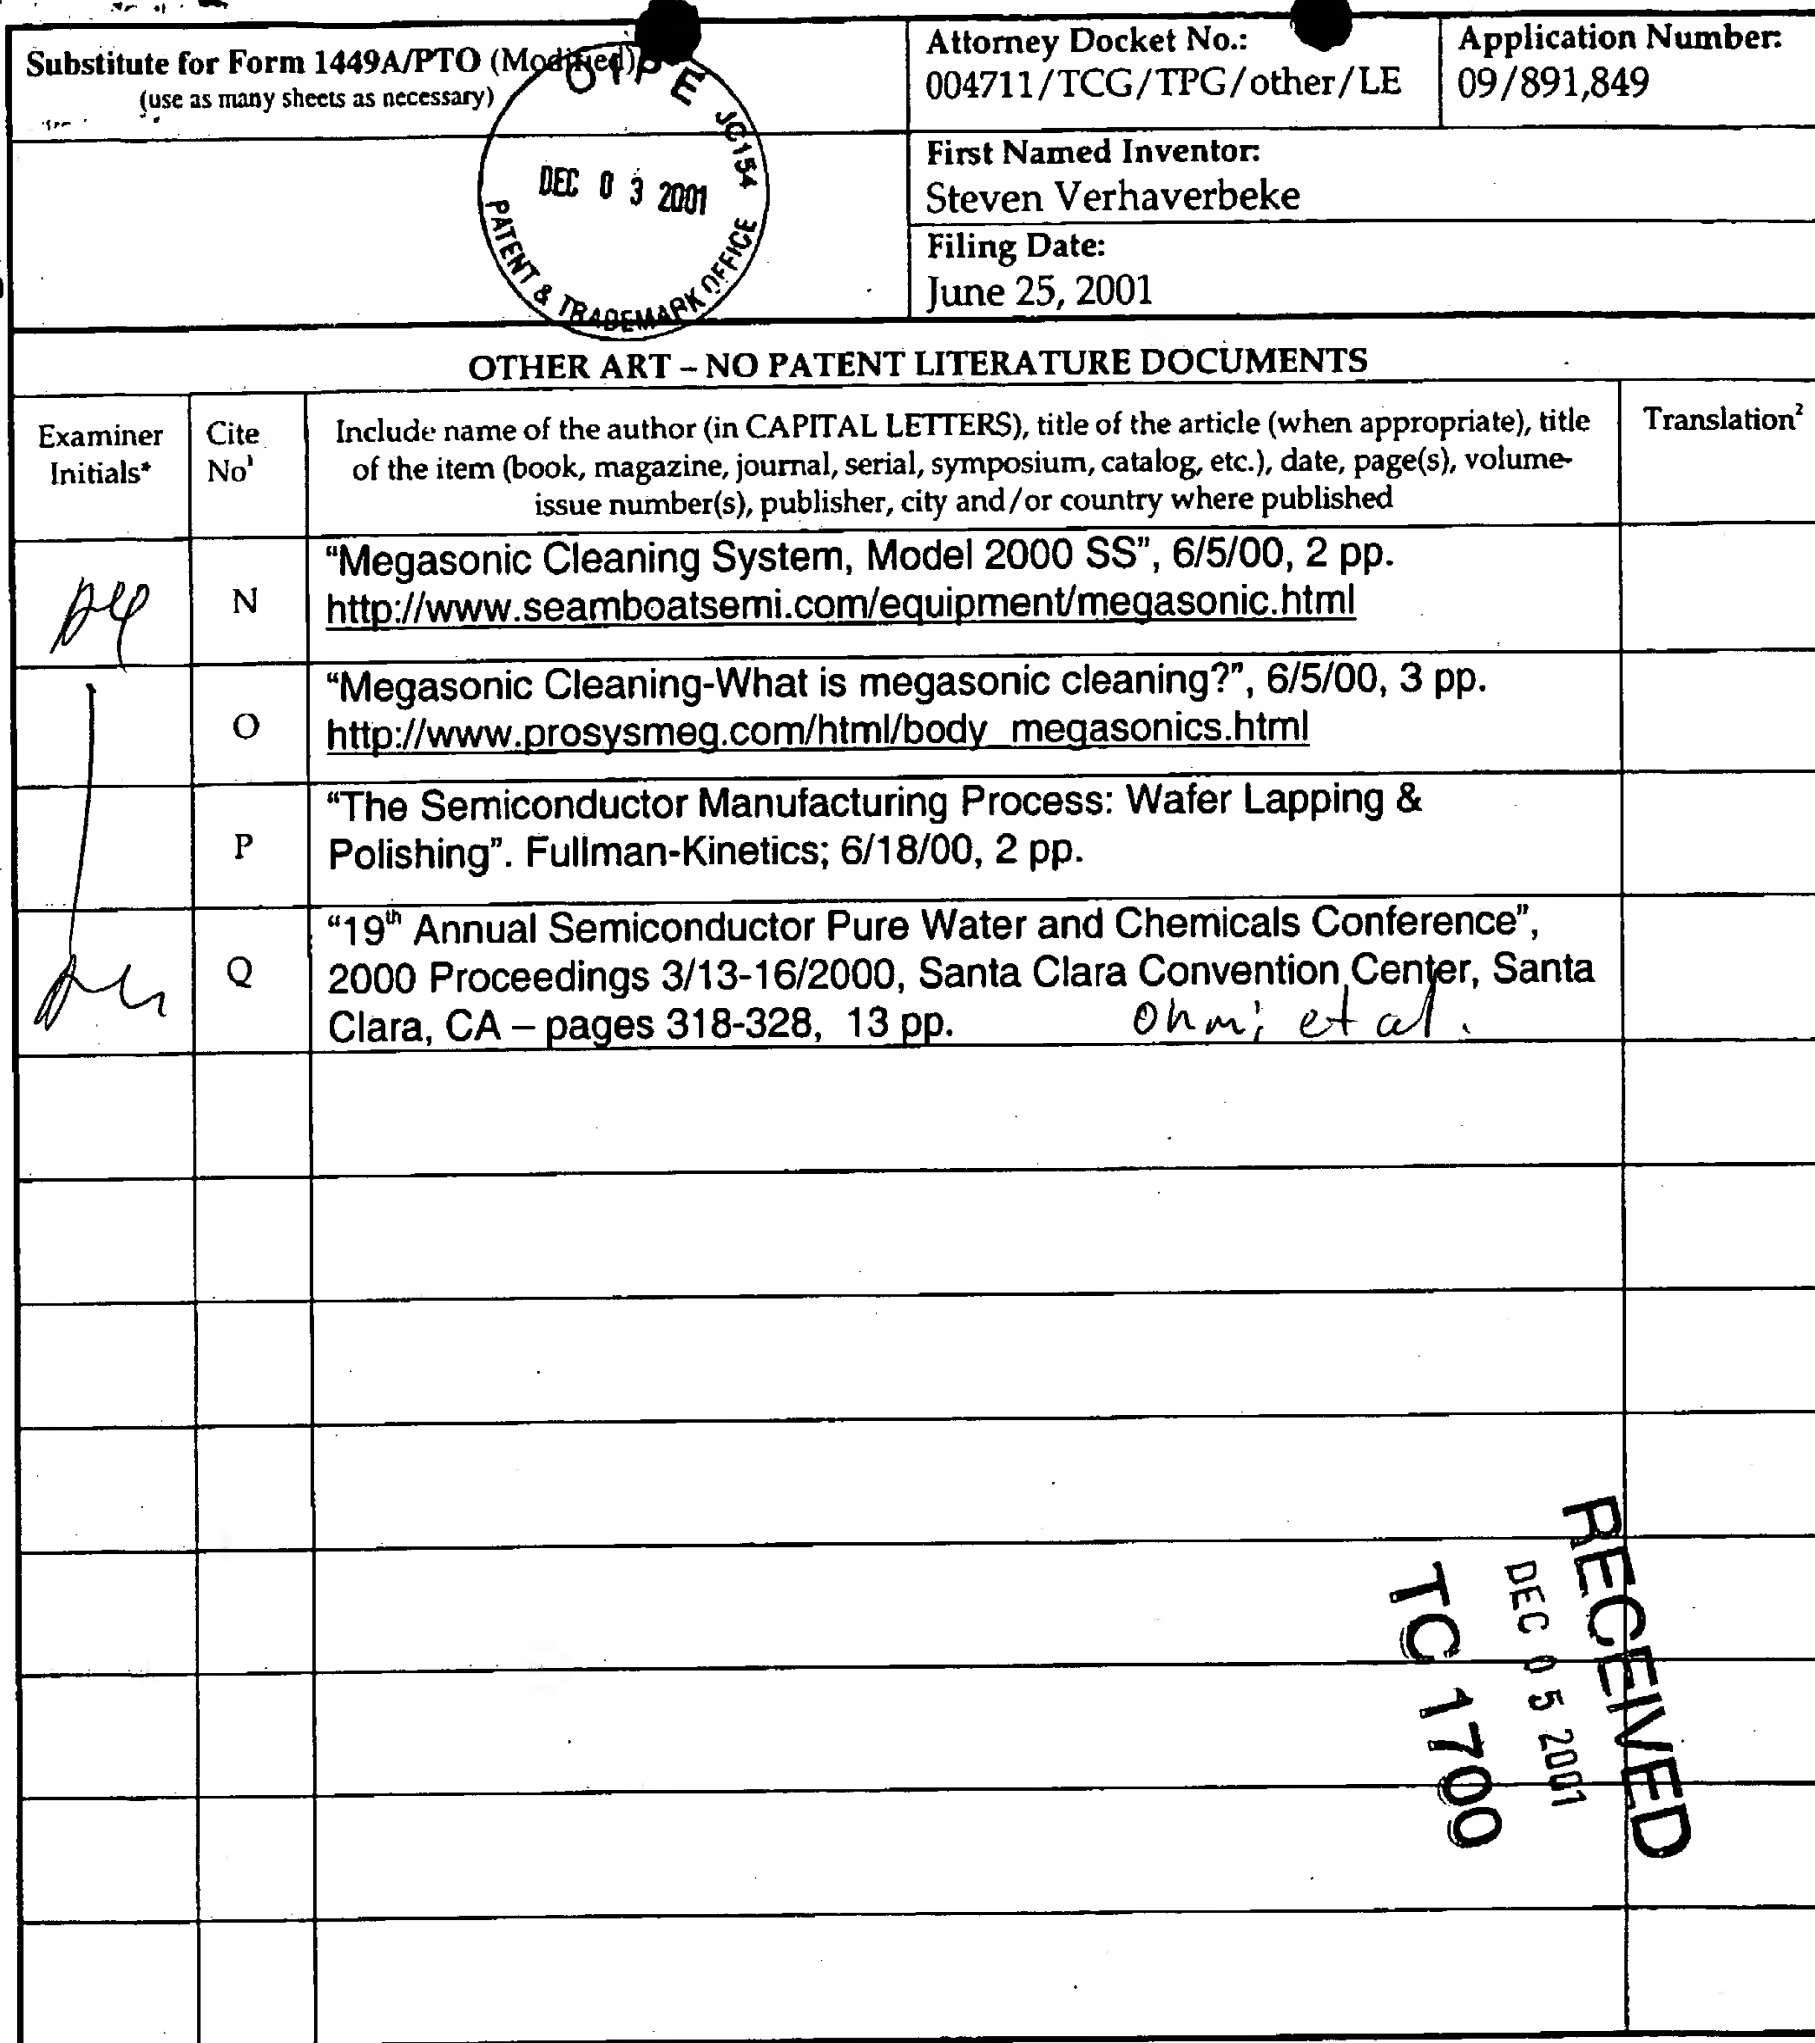 Substitute for Form 1449A/PTO (Modified)
(use as many sheets as necessary)
Attorney Docket No.:
004711/TCG/TPG/other/LE
Application Number:
09/891,849
First Named Inventor:
Steven Verhaverbeke
Filing Date:
June 25, 2001
OIPE JC154
DEC 03 2001
PATENT & TRADEMARK OFFICE
OTHER ART – NO PATENT LITERATURE DOCUMENTS
Examiner
Initials*
Cite
No¹
Include name of the author (in CAPITAL LETTERS), title of the article (when appropriate), title
of the item (book, magazine, journal, serial, symposium, catalog, etc.), date, page(s), volume-
issue number(s), publisher, city and/or country where published
Translation²
N
“Megasonic Cleaning System, Model 2000 SS”, 6/5/00, 2 pp.
http://www.seamboatsemi.com/equipment/megasonic.html
O
“Megasonic Cleaning-What is megasonic cleaning?”, 6/5/00, 3 pp.
http://www.prosysmeg.com/html/body_megasonics.html
P
“The Semiconductor Manufacturing Process: Wafer Lapping &
Polishing”. Fullman-Kinetics; 6/18/00, 2 pp.
Q
“19th Annual Semiconductor Pure Water and Chemicals Conference”,
2000 Proceedings 3/13-16/2000, Santa Clara Convention Center, Santa
Clara, CA – pages 318-328, 13 pp.
Ohmi et al.
RECEIVED
DEC 05 2001
TC 1700